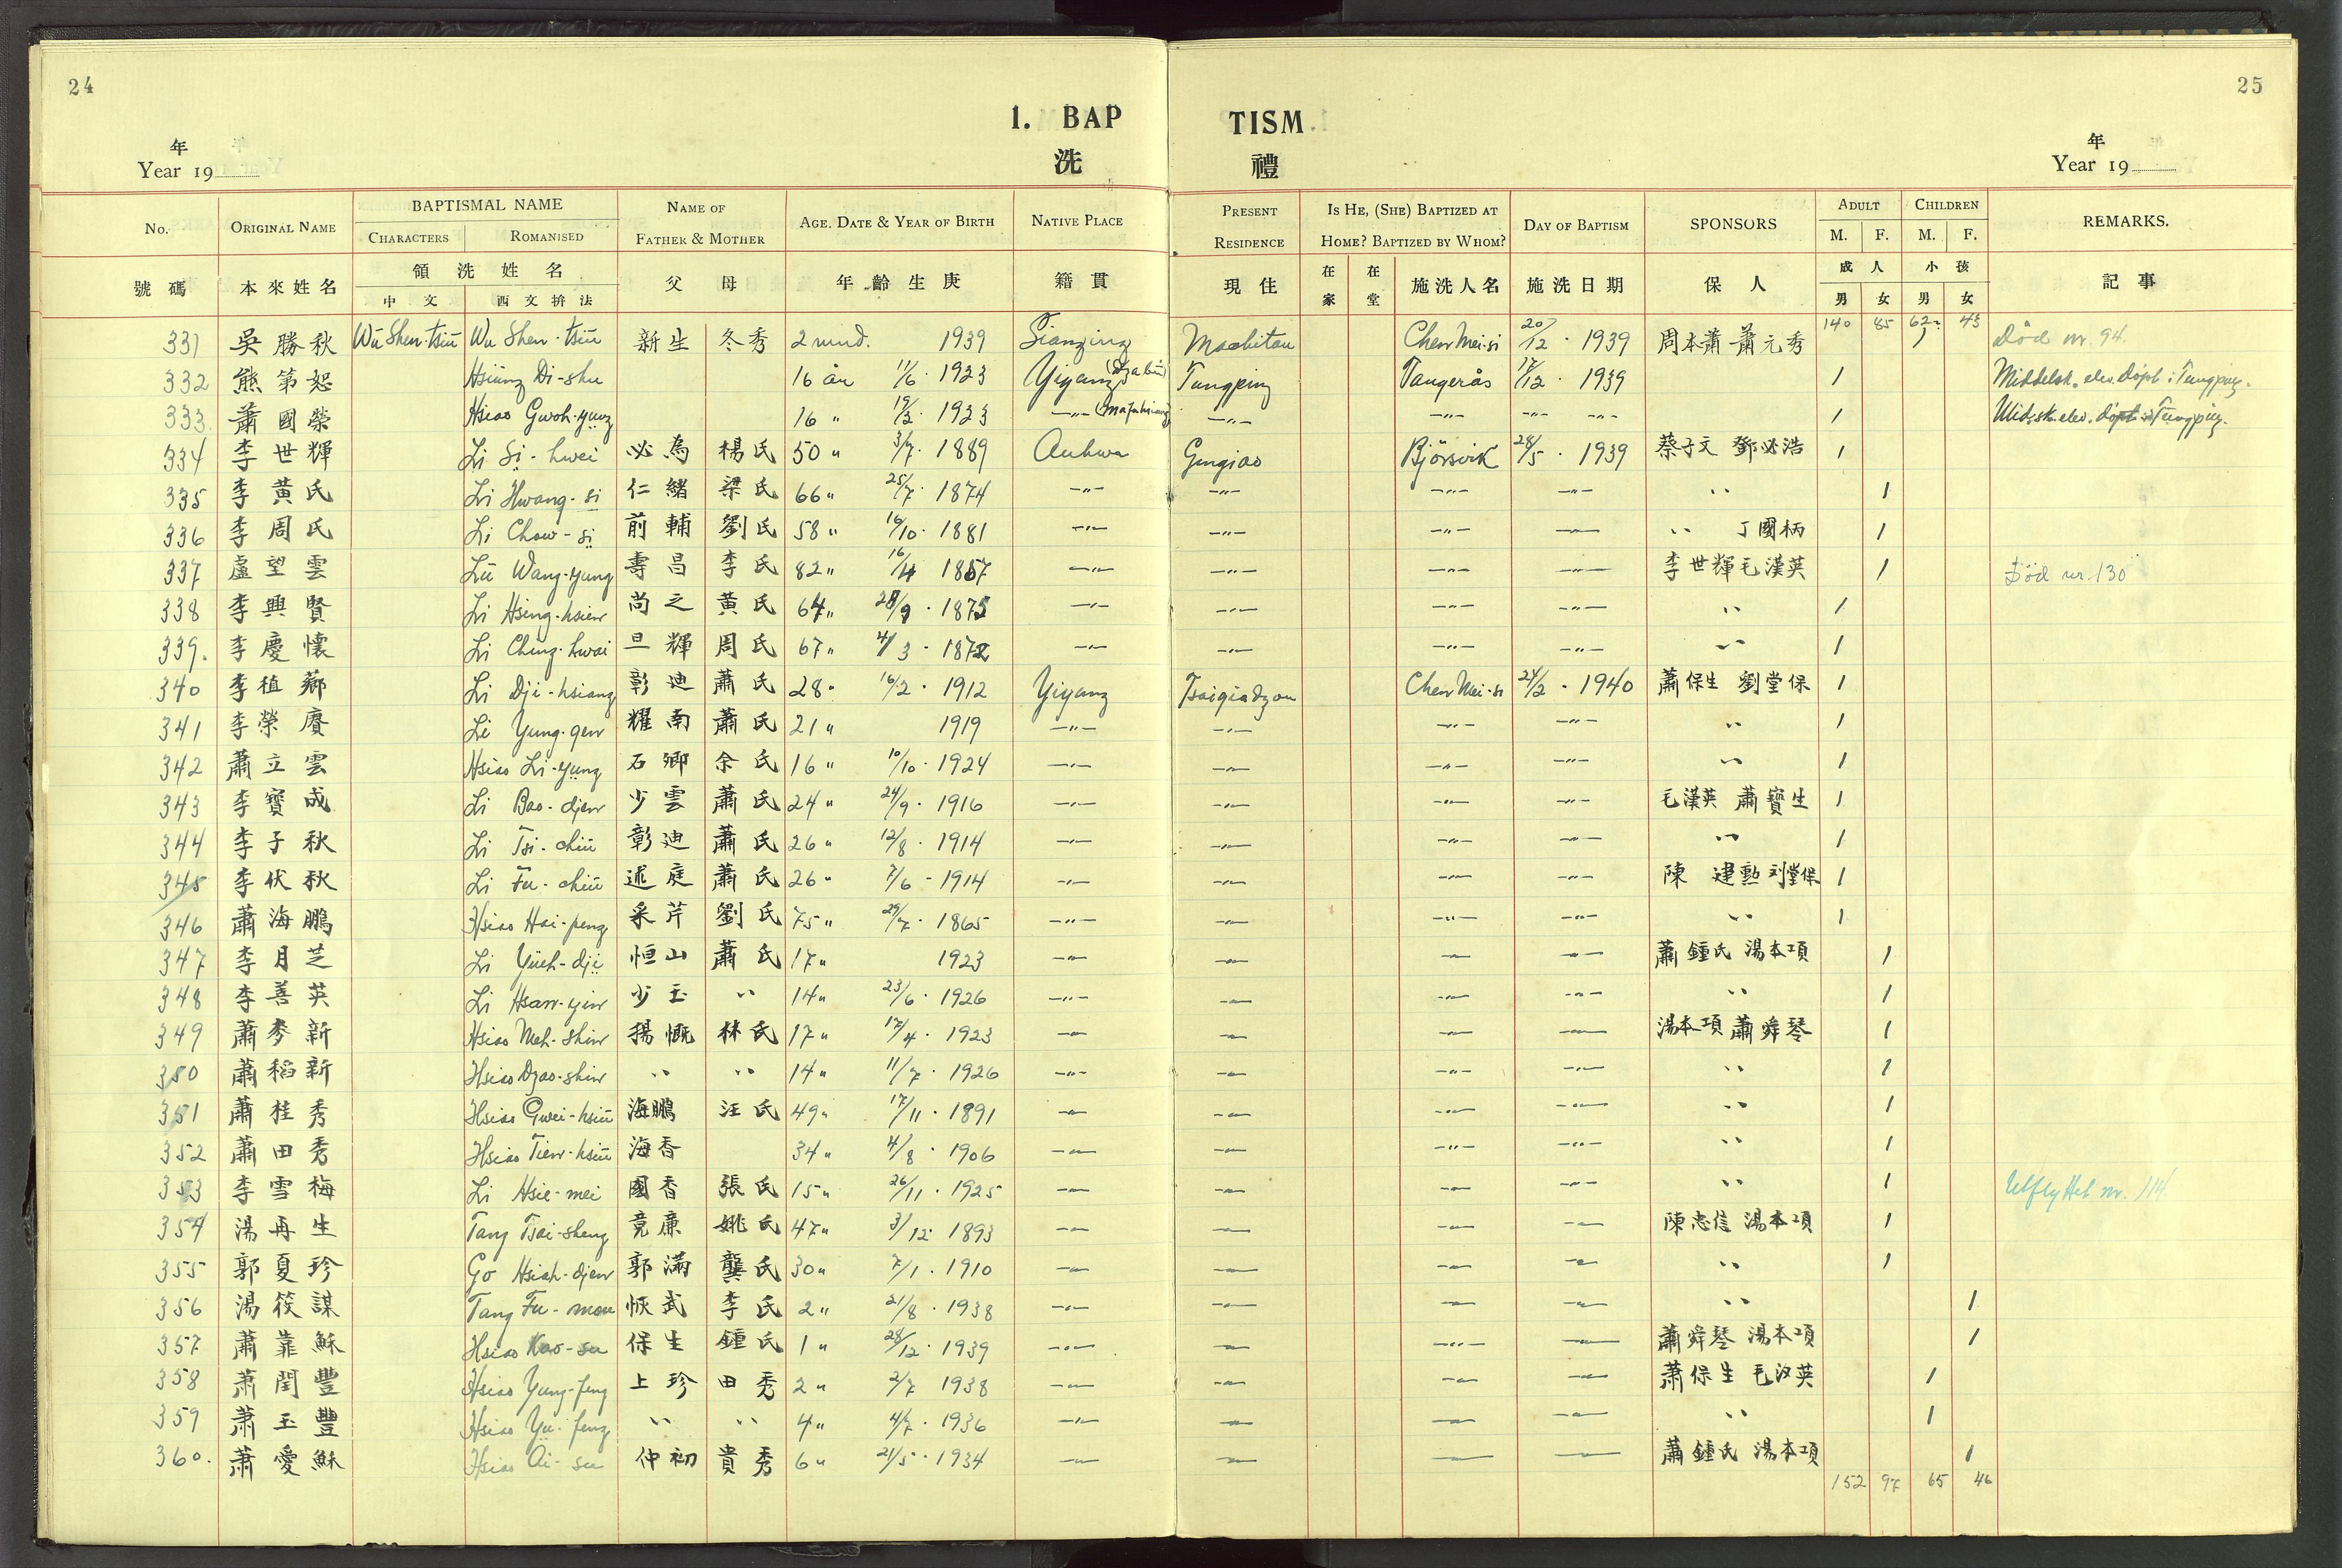 24
25
1. BAP TISM
洗 禮
年 年
Year 19 Year 19
No. ORIGINAL NAME BAPTISMAL NAME NAME OF AGE. DATE & YEAR OF BIRTH NATIVE PLACE PRESENT IS HE, (SHE) BAPTIZED AT DAY OF BAPTISM SPONSORS ADULT CHILDREN REMARKS.
CHARACTERS ROMANISED FATHER & MOTHER RESIDENCE HOME? BAPTIZED BY WHOM? M. F. M. F.
號碼 本來姓名 領洗姓名 父 母 年齡生庚 籍貫 現住 在家 在堂 施洗人名 施洗日期 保人 成人 小孩 記事
中文 西文拚法 男 女 男 女
140 85 62 43
331 吳勝秋 Wu Shen-tsiu Wu Shen-tsiu 新生 冬秀 2 mnd. 1939 Sianging Machitan Chen Mei-si 20/12 · 1939 周本蕭 蕭元秀 1 Död nr. 94.
332 熊第恕 Hsiung Di-shu 16 år 11/6 · 1923 Yiyang Tungping Vangerås 17/12 · 1939 1 Middelsk. elev. döpt i Tungping.
333 蕭國榮 Hsiao Gwoh-yung 16 " 19/2 · 1923 —"— —"— —"— —"— 1 Midsk. elev. döpt i Tungping.
334 李世輝 Li Si-hwei 必為 楊氏 50 " 3/7 · 1889 Anhwa Gingiao Björsvik 28/5 · 1939 蔡子文 鄧必浩 1
335 李黃氏 Li Hwang-si 仁緒 梁氏 66 " 25/7 · 1874 —"— —"— —"— —"— " 1
336 李周氏 Li Chow-si 前輔 劉氏 58 " 16/10 · 1881 —"— —"— —"— — " 丁國柄 1
337 盧望雲 Lü Wang-yung 壽昌 李氏 82 " 16/4 1857 —"— —"— —"— —"— 李世輝 毛漢英 1 Död nr. 130
338 李興賢 Li Hsing-hsien 尚之 黃氏 64 " 28/9 · 1875 —"— —"— —"— —"— " 1
339. 李慶懷 Li Ching-hwai 旦輝 周氏 67 " 4/3 - 1872 —"— —"— —"— —"— " 1
340 李植薌 Li Dji-hsiang 彰迪 蕭氏 28 " 16/2 · 1912 Yiyang Tsaigiadzou Chen Mei-si 24/2 · 1940 蕭保生 劉堂保 1
341 李榮賡 Li Yung-gen 耀南 蕭氏 21 " 1919 —"— —"— —"— —"— " 1
342 蕭立雲 Hsiao Li-yung 石鄉 余氏 16 " 10/10 · 1924 —"— —"— —"— —"— " 1
343 李寶成 Li Bao-djen 少雲 蕭氏 24 " 24/9 · 1916 —"— —"— —"— —"— 毛漢英 蕭寶生 1
344 李子秋 Li Tsi-chiu 彰迪 蕭氏 26 " 12/8 · 1914 —"— —"— —"— —"— " 1
345 李伏秋 Li Fu-chiu 述庭 蕭氏 26 " 7/6 - 1914 —"— —"— —"— —"— 陳建勳 刘堂保 1
346 蕭海鵬 Hsiao Hai-peng 采芹 劉氏 75 " 29/7 · 1865 —"— —"— —"— —"— " 1
347 李月芝 Li Yüeh-dji 恒山 蕭氏 17 " 1923 —"— —"— —"— —"— 蕭鍾氏 湯本項 1
348 李善英 Li Hsan-yin 少玉 " 14 " 23/6 · 1926 —"— —"— —"— —"— " 1
349 蕭麥新 Hsiao Meh-shin 揚慨 林氏 17 " 17/4 · 1923 —"— —"— —"— —"— 湯本項 蕭舜琴 1
350 蕭稻新 Hsiao Dzao-shin " " 14 " 11/7 · 1926 —"— —"— —"— —"— " 1
351 蕭桂秀 Hsiao Gwei-hsiu 海鵬 汪氏 49 " 17/11 · 1891 —"— —"— —"— —"— " 1
352 蕭田秀 Hsiao Tien-hsiu 海香 34 " 4/8 · 1906 —"— —"— —"— —"— " 1
353 李雪梅 Li Hsie-mei 國香 張氏 15 " 26/11 · 1925 —"— —"— —"— —"— " 1 Utflyttet nr. 114.
354 湯再生 Tang Tsai-sheng 竟廉 姚氏 47 " 3/12 1893 —"— —"— —"— —"— 陳忠信 湯本項 1
355 郭夏珍 Go Hsiah-djen 郭滿 龔氏 30 " 7/1 · 1910 —"— —"— —"— —"— " 1
356 湯筱謀 Tang Fu-mou 恢武 李氏 2 " 21/8 · 1938 —"— —"— —"— —"— " 1
357 蕭靠穌 Hsiao Kao-su 保生 鍾氏 1 " 28/12 · 1939 —"— —"— —"— —"— 蕭舜琴 湯本項 1
358 萧閏豐 Hsiao Yung-feng 上珍 田秀 2 " 2/7 1938 —"— —"— —"— —"— 萧保生 毛汉英 1
359 萧玉豐 Hsiao Yü-feng " " 4 " 4/7 · 1936 —"— —"— —"— —"— " 1
360. 萧愛穌 Hsiao Ai-su 仲初 貴秀 6 " 21/5 · 1934 —"— —"— —"— —"— 蕭鍾氏 湯本項 1
152 97 65 46